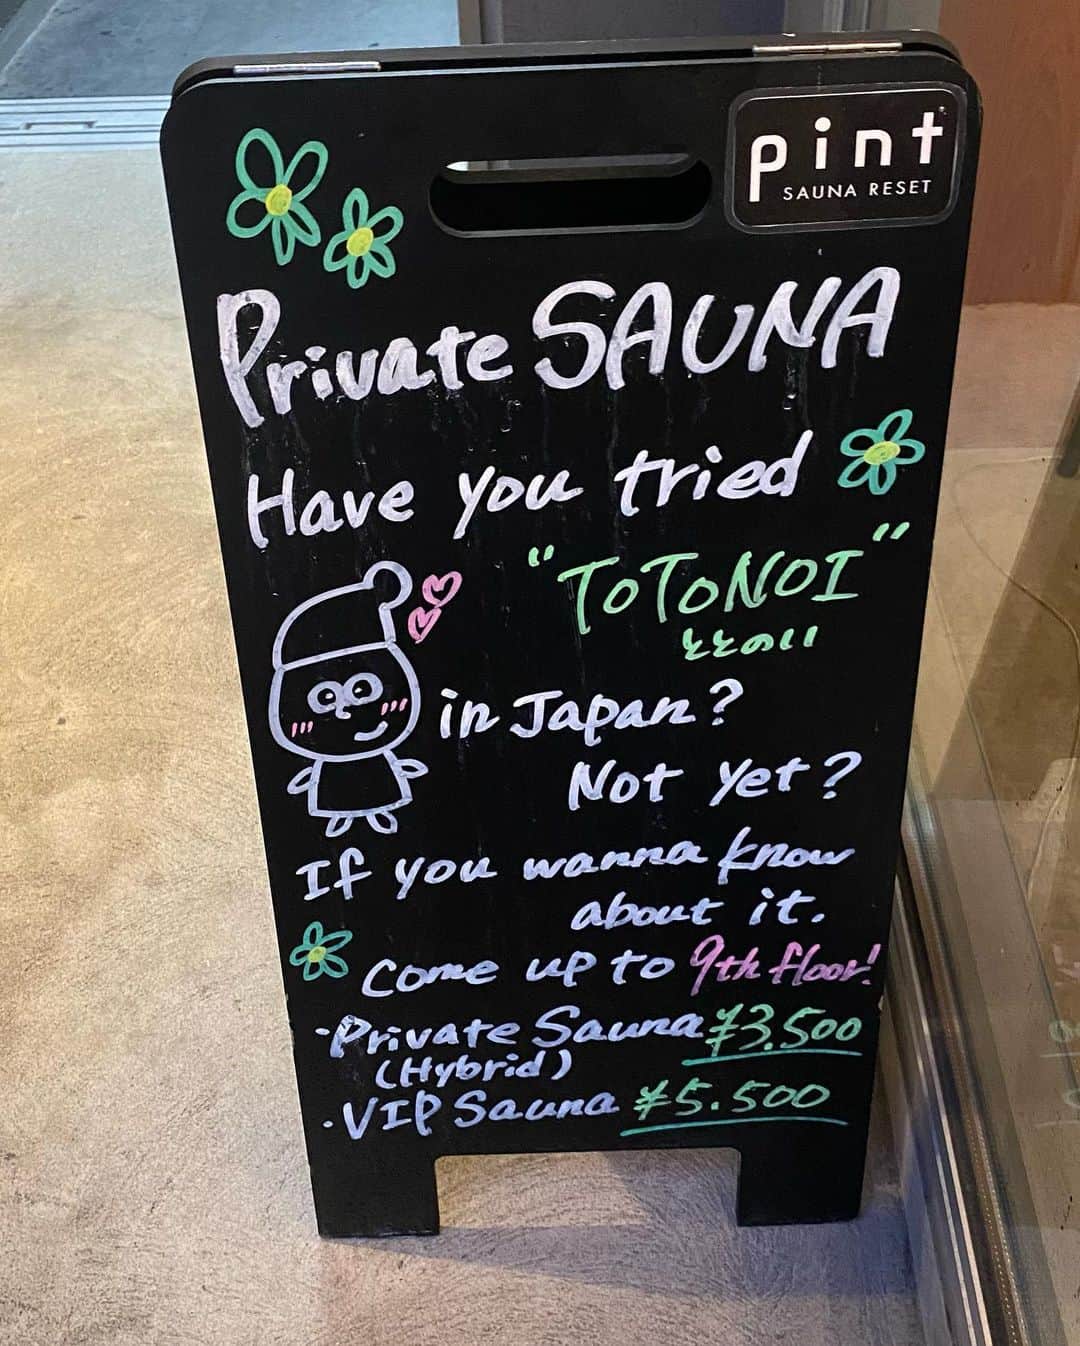 pint
SAUNA RESET
Private SAUNA
Have you tried
"TOTONOI"
ととのい
in Japan?
Not yet?
If you wanna know
about it.
Come up to 9th floor!
・Private Sauna ¥3.500
(Hybrid)
・VIP Sauna ¥5.500